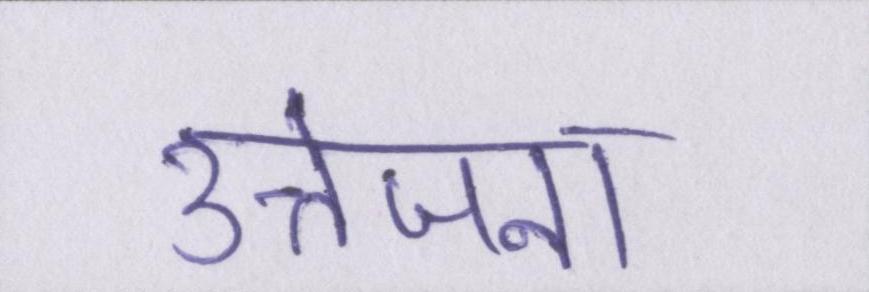 उत्तेजना